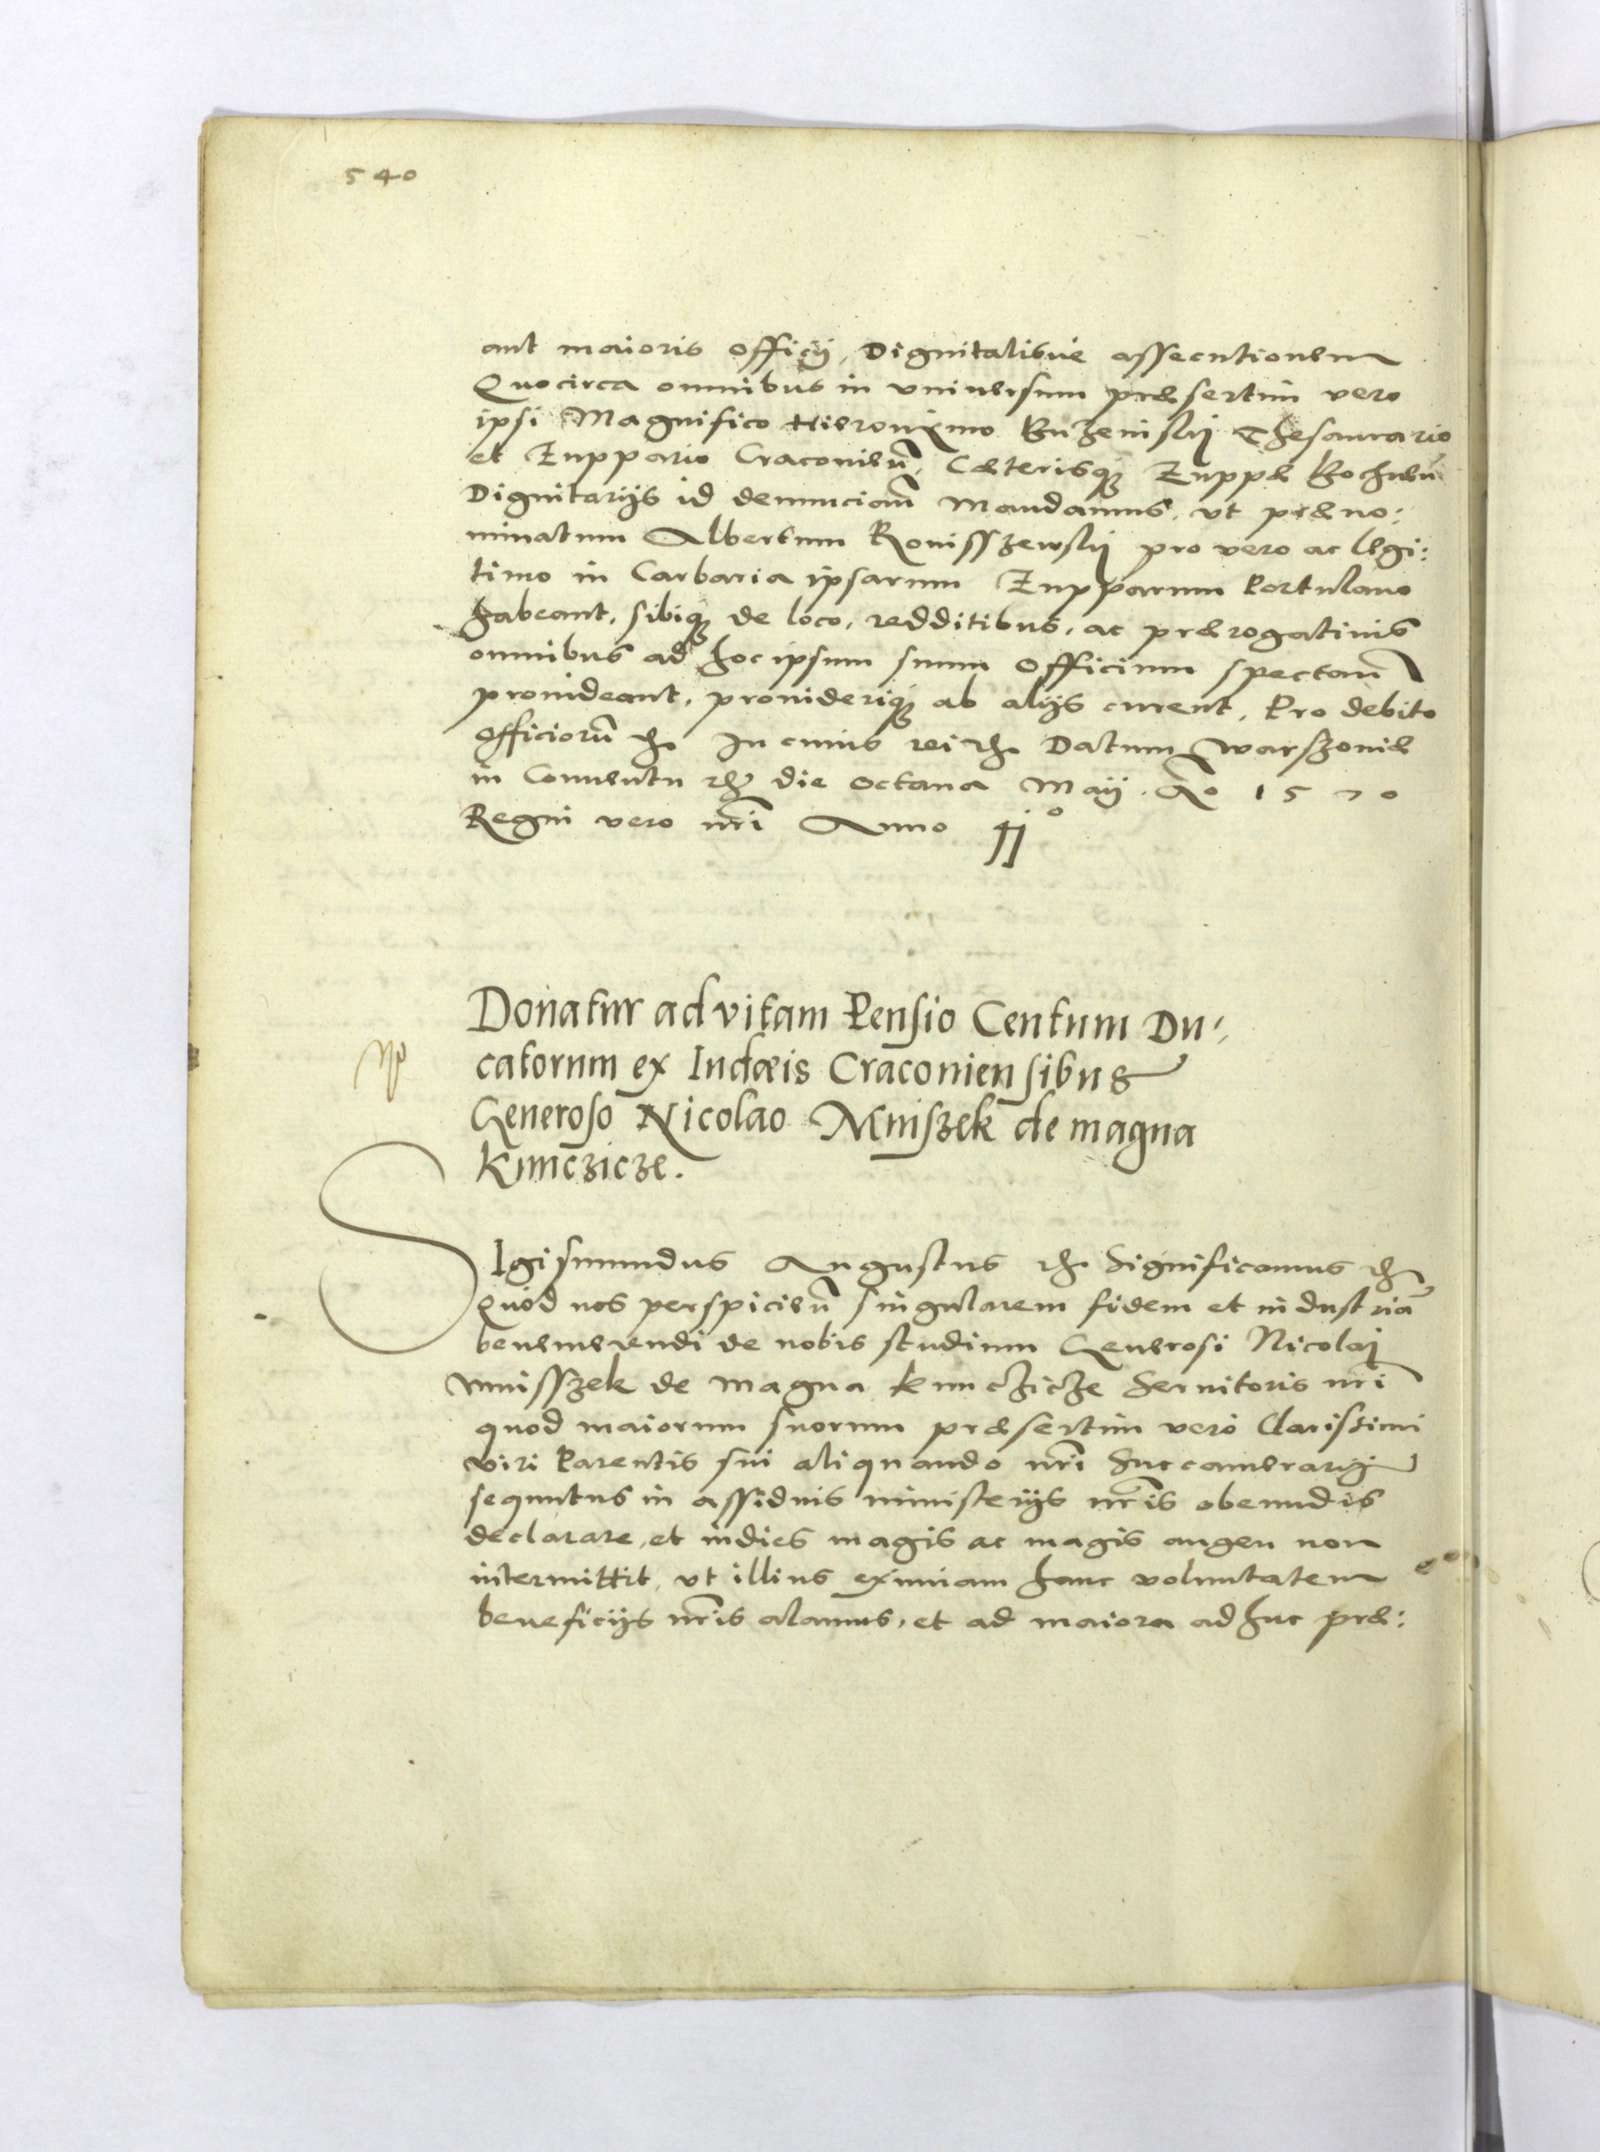 540
aut maioris officij, Dignitatisue assecutionem
Quocirca omnibus in vniuersum præsertim vero
ipsi Magnifico Hieronÿmo Buzenskij Thesaurario
et Zuppario Craconień, Cæterisq; Zuppæ Bochneń
Dignitarijs id denunciań Mandamus, vt præno:
minatum Albertum Ronisszewskij pro vero ac legi:
timo in Carbaria ipsarum Zupparum Portulano
habeant, sibiq; de loco, redditibus, ac prærogatiuis
omnibus ad hoc ipsum suum officium spectań
prouideant, prouideriq; ab alijs curent, Pro debito
officiorū etc. In cuius rei etc. Datum Warszouiæ
in Conuentu etc. die octaua Maij. Aº 1570
Regni vero nrī Anno 41º
Donatur ad vitam Pensio Centum Du-
catorum ex Iudæis Craconiensibus
Generoso Nicolao Mniszek de magna
Kunczicze.
SIgismundus Augustus etc. Significamus etc.
Quod nos perspicień singularem fidem et industriā
benemerendi de nobis studium Generosi Nicolaj
Mnisszek de Magna Kunczicze Seruitoris nrī
quod maiorum suorum præsertim vero Clarissimi
viri Parentis sui aliquando nrī Succamerarij
sequutus in assiduis ministerijs nrīs obeundis
declarare, et indies magis ac magis augeri non
intermittit, vt illius eximiam hanc voluntatem
beneficijs nrīs alamus, et ad maiora adhuc præ: